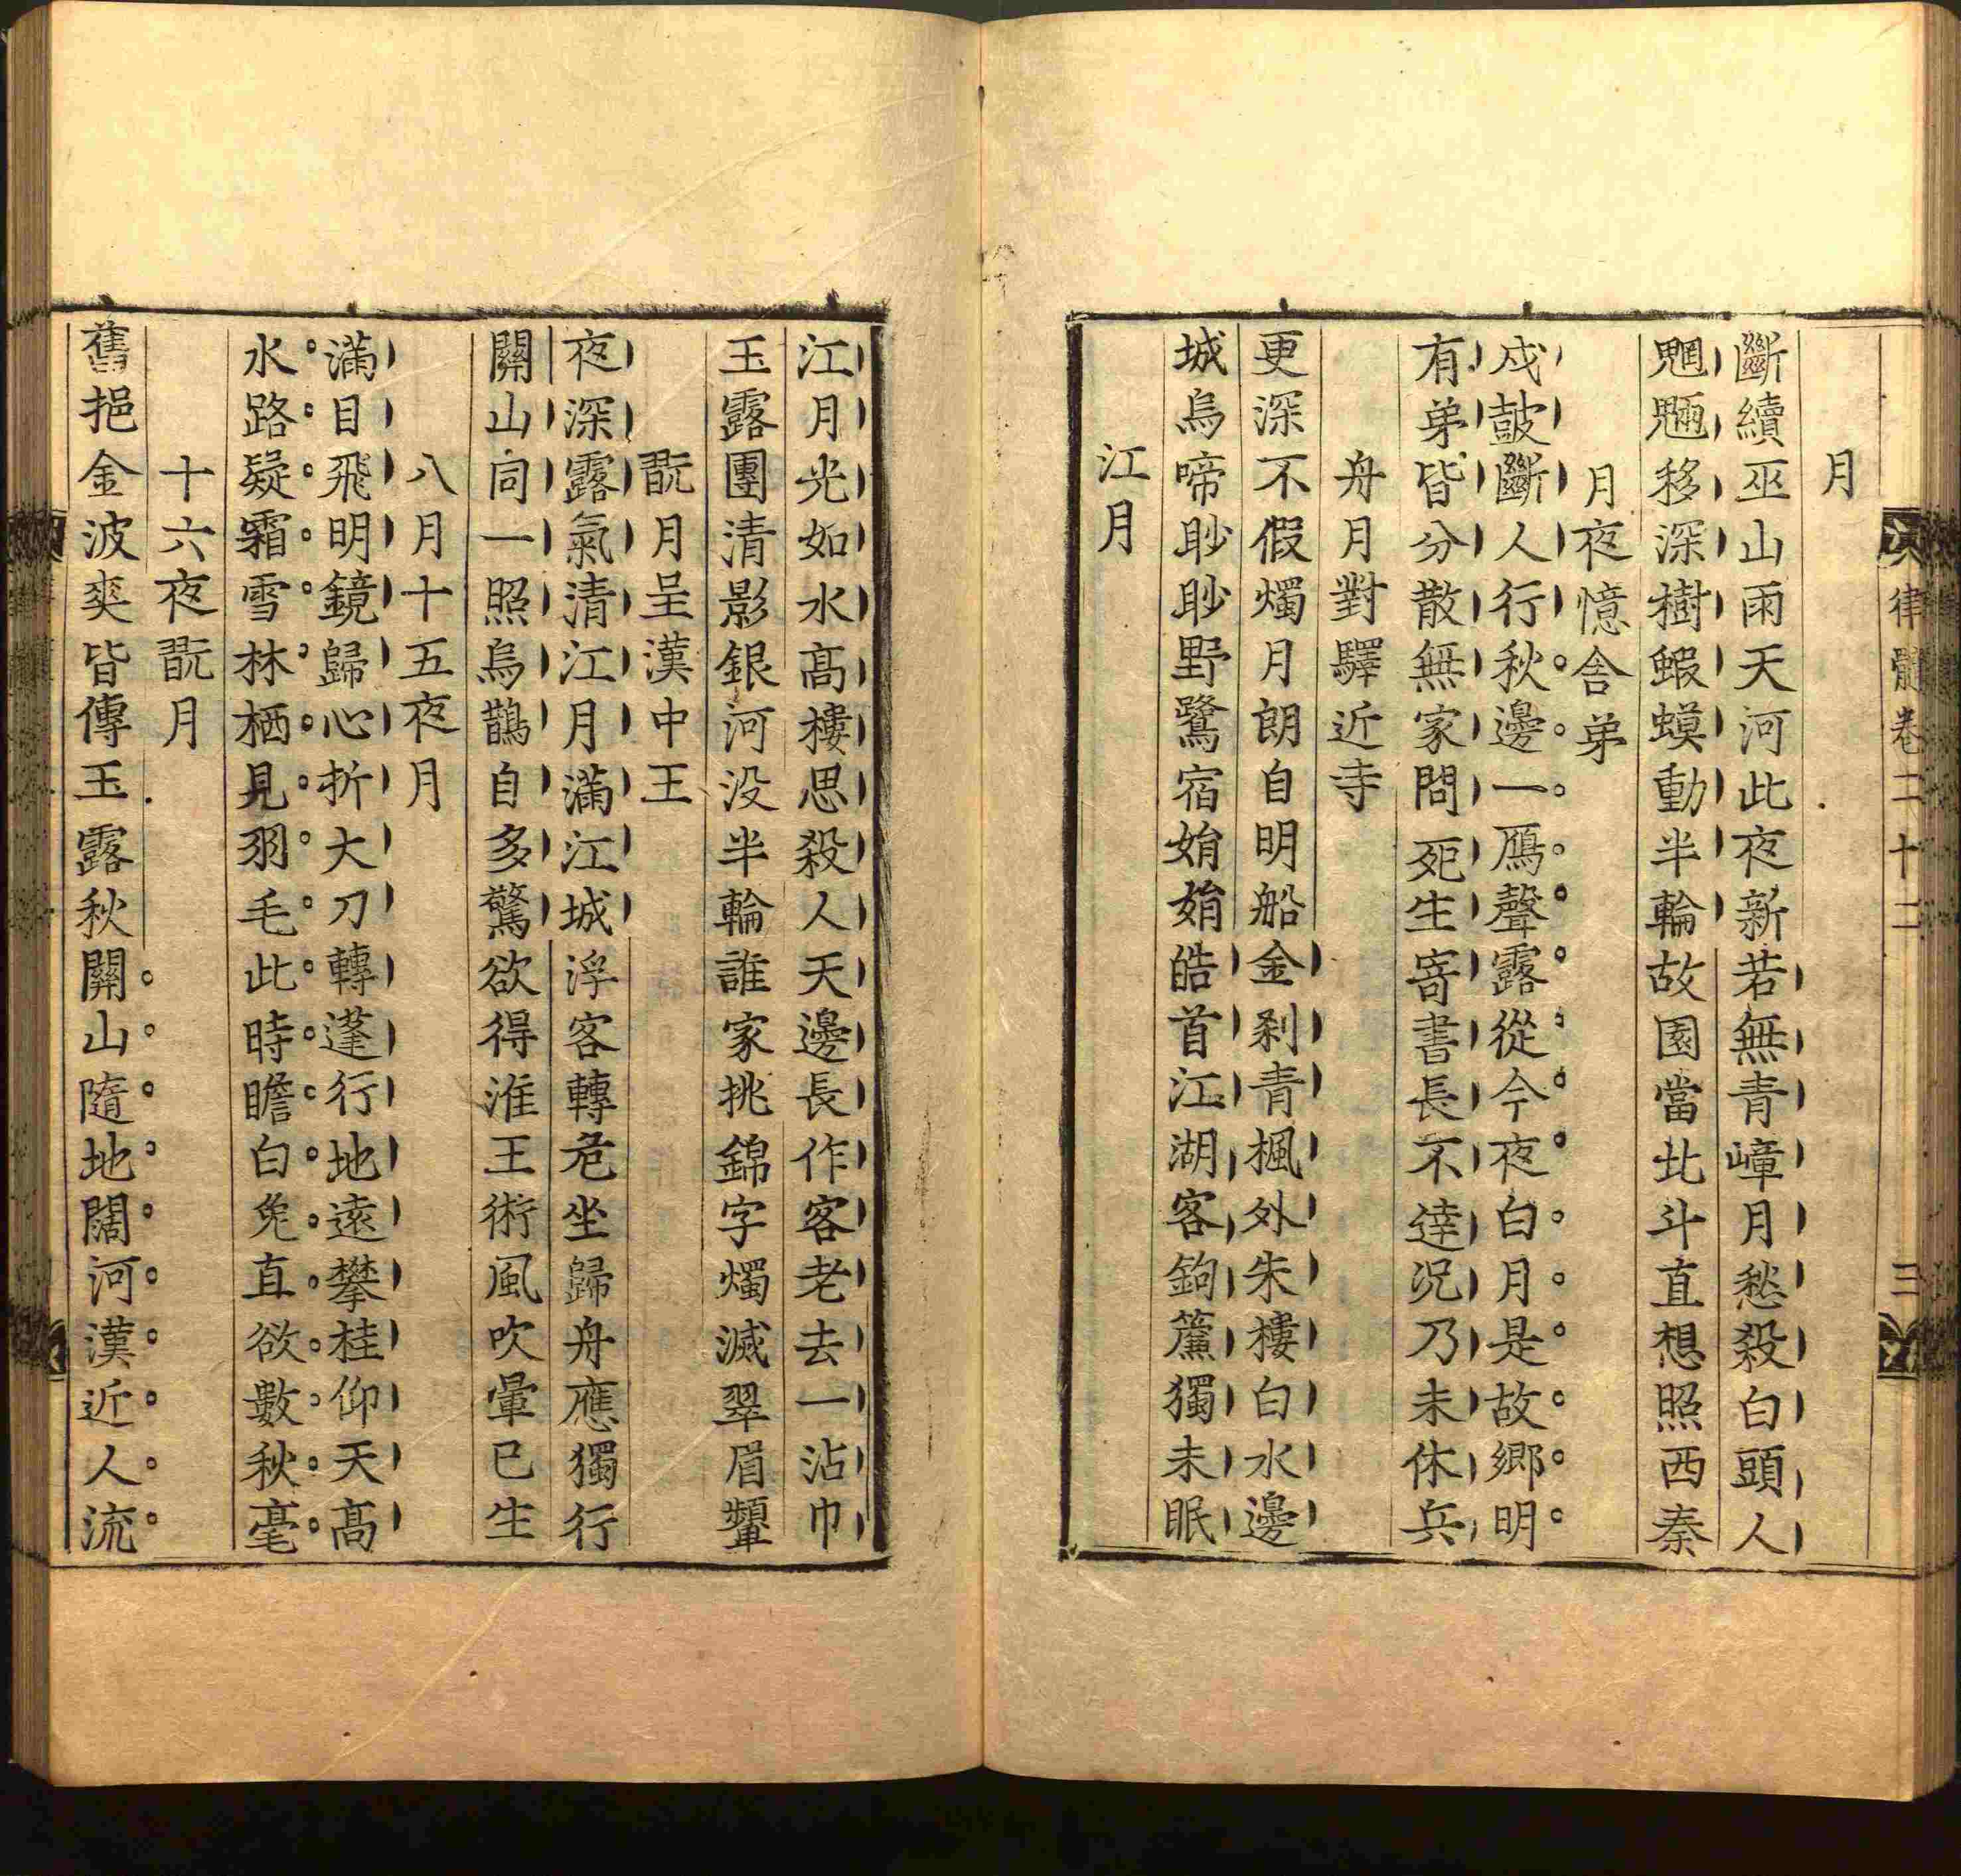 律髓卷二十二 三
月
斷續巫山雨天河此夜新若無青嶂月愁殺白頭人
魍魎移深樹蝦蟆動半輪故園當北斗直想照西秦
月夜憶舍弟
戍鼓斷人行秋邊一鴈聲露從今夜白月是故鄉明
有弟皆分散無家問死生寄書長不達況乃未休兵
舟月對驛近寺
更深不假燭月朗自明船金刹青楓外朱樓白水邊
城烏啼眇眇野鷺宿娟娟皓首江湖客鉤簾獨未眠
江月
江月光如水高樓思殺人天邊長作客老去一沾巾
玉露團清影銀河沒半輪誰家挑錦字燭滅翠眉顰
翫月呈漢中王
夜深露氣清江月滿江城浮客轉危坐歸舟應獨行
關山同一照烏鵲自多驚欲得淮王術風吹暈已生
八月十五夜月
滿目飛明鏡歸心折大刀轉蓬行地遠攀桂仰天高
水路疑霜雪林栖見羽毛此時瞻白兔直欲數秋毫
十六夜翫月
舊挹金波爽皆傳玉露秋關山隨地闊河漢近人流